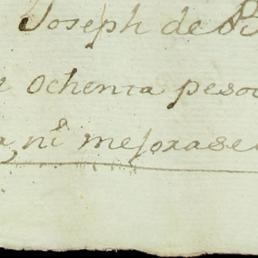 Joseph de
ochenta pesos
ni mejorase